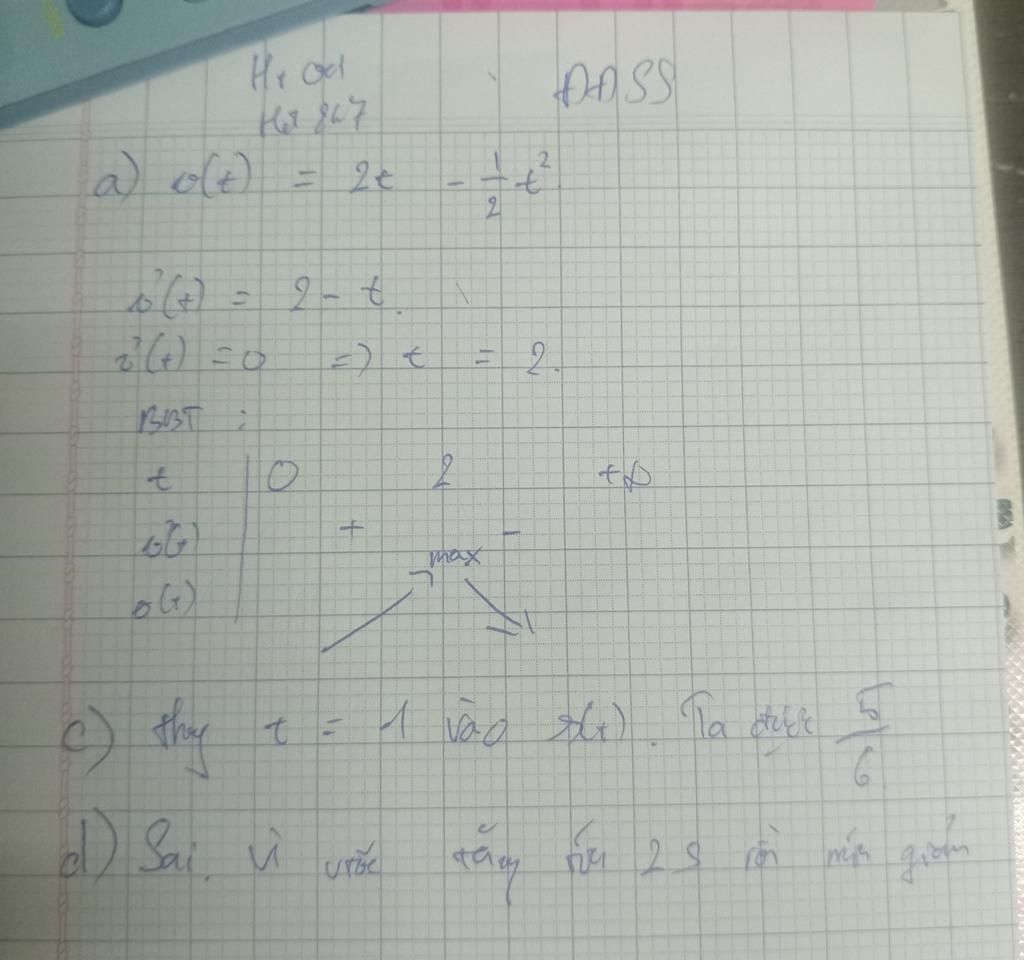 ĐĐSS
a) v(t) = 2t - 1/2 t²
v'(t) = 2 - t.
v'(t) = 0 => t = 2.
BBT :
t 0 2 +∞
v'(t) + -
max
v(t)
c) thay t = 1 vào x(t). Ta được 5/6
d) Sai. Vì vtốc tăng tới 2s rồi mới giảm